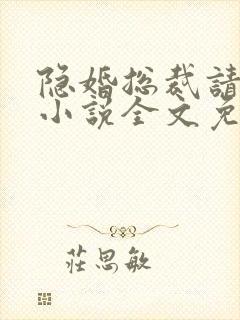 隐婚总裁請
小説全文免
莊思敏